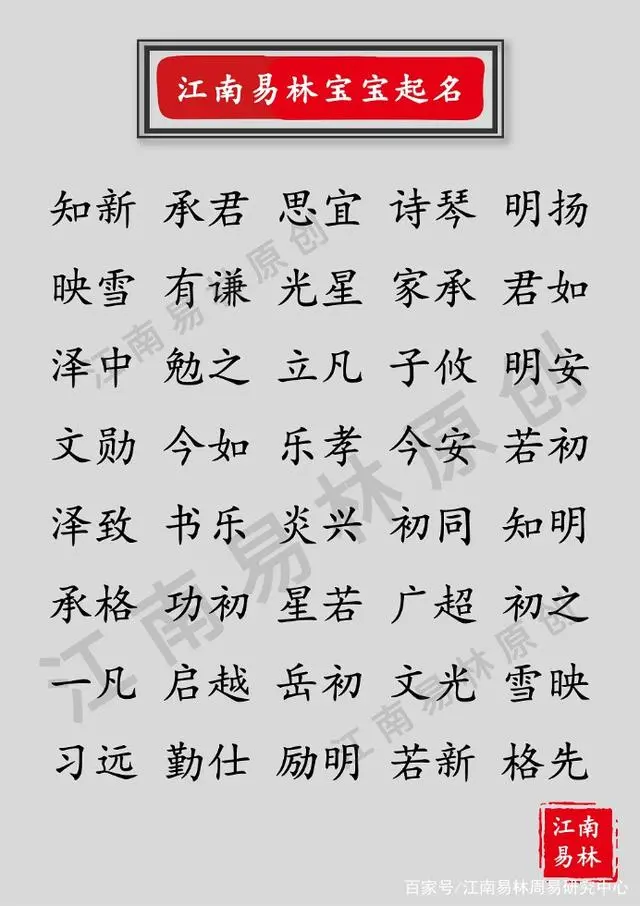 江南易林宝宝起名
知新 承君 思宜 诗琴 明扬
映雪 有谦 光星 家承 君如
泽中 勉之 立凡 子攸 明安
文勋 今如 乐孝 今安 若初
泽致 书乐 炎兴 初同 知明
承格 功初 星若 广超 初之
一凡 启越 岳初 文光 雪映
习远 勤仕 励明 若新 格先
江南易林原创
江南易林原创
江南易林原创
江南
易林
百家号/江南易林周易研究中心